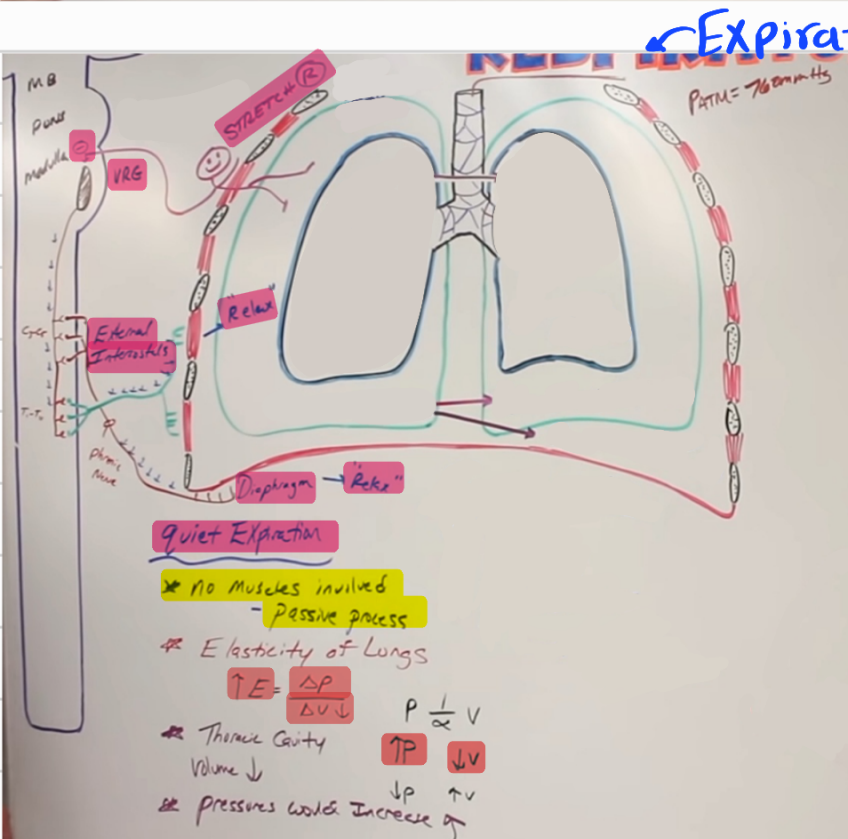 Expira
PATM = 760mmHg
MB
Pons
Medulla
STRETCH R
VRG
"Relax"
External
Intercostals
Phrenic
Nerve
Diaphragm → "Relax"
Quiet Expiration
* no Muscles involved
- Passive process
* Elasticity of Lungs
↑E = ΔP
ΔV↓
P 1/α V
* Thoracic Cavity
Volume ↓
↑P ↓V
↓P ↑V
* Pressures would Increase ↑